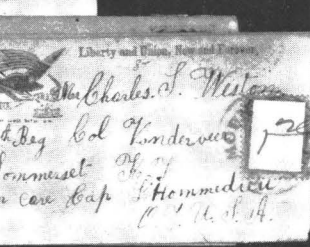 Liberty and Union, Now and Forever.
Charles. S. Weston
Beg Col Vanderveer
Sommerset Ky
care Cap L'Hommedieu
U. S. A.